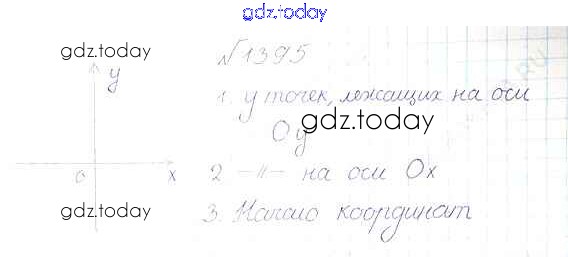 gdz.today
gdz.today
№1395
y
1. у точек, лежащих на оси
Oy
gdz.today
o
x
2 —//— на оси Ox
gdz.today
3. Начало координат